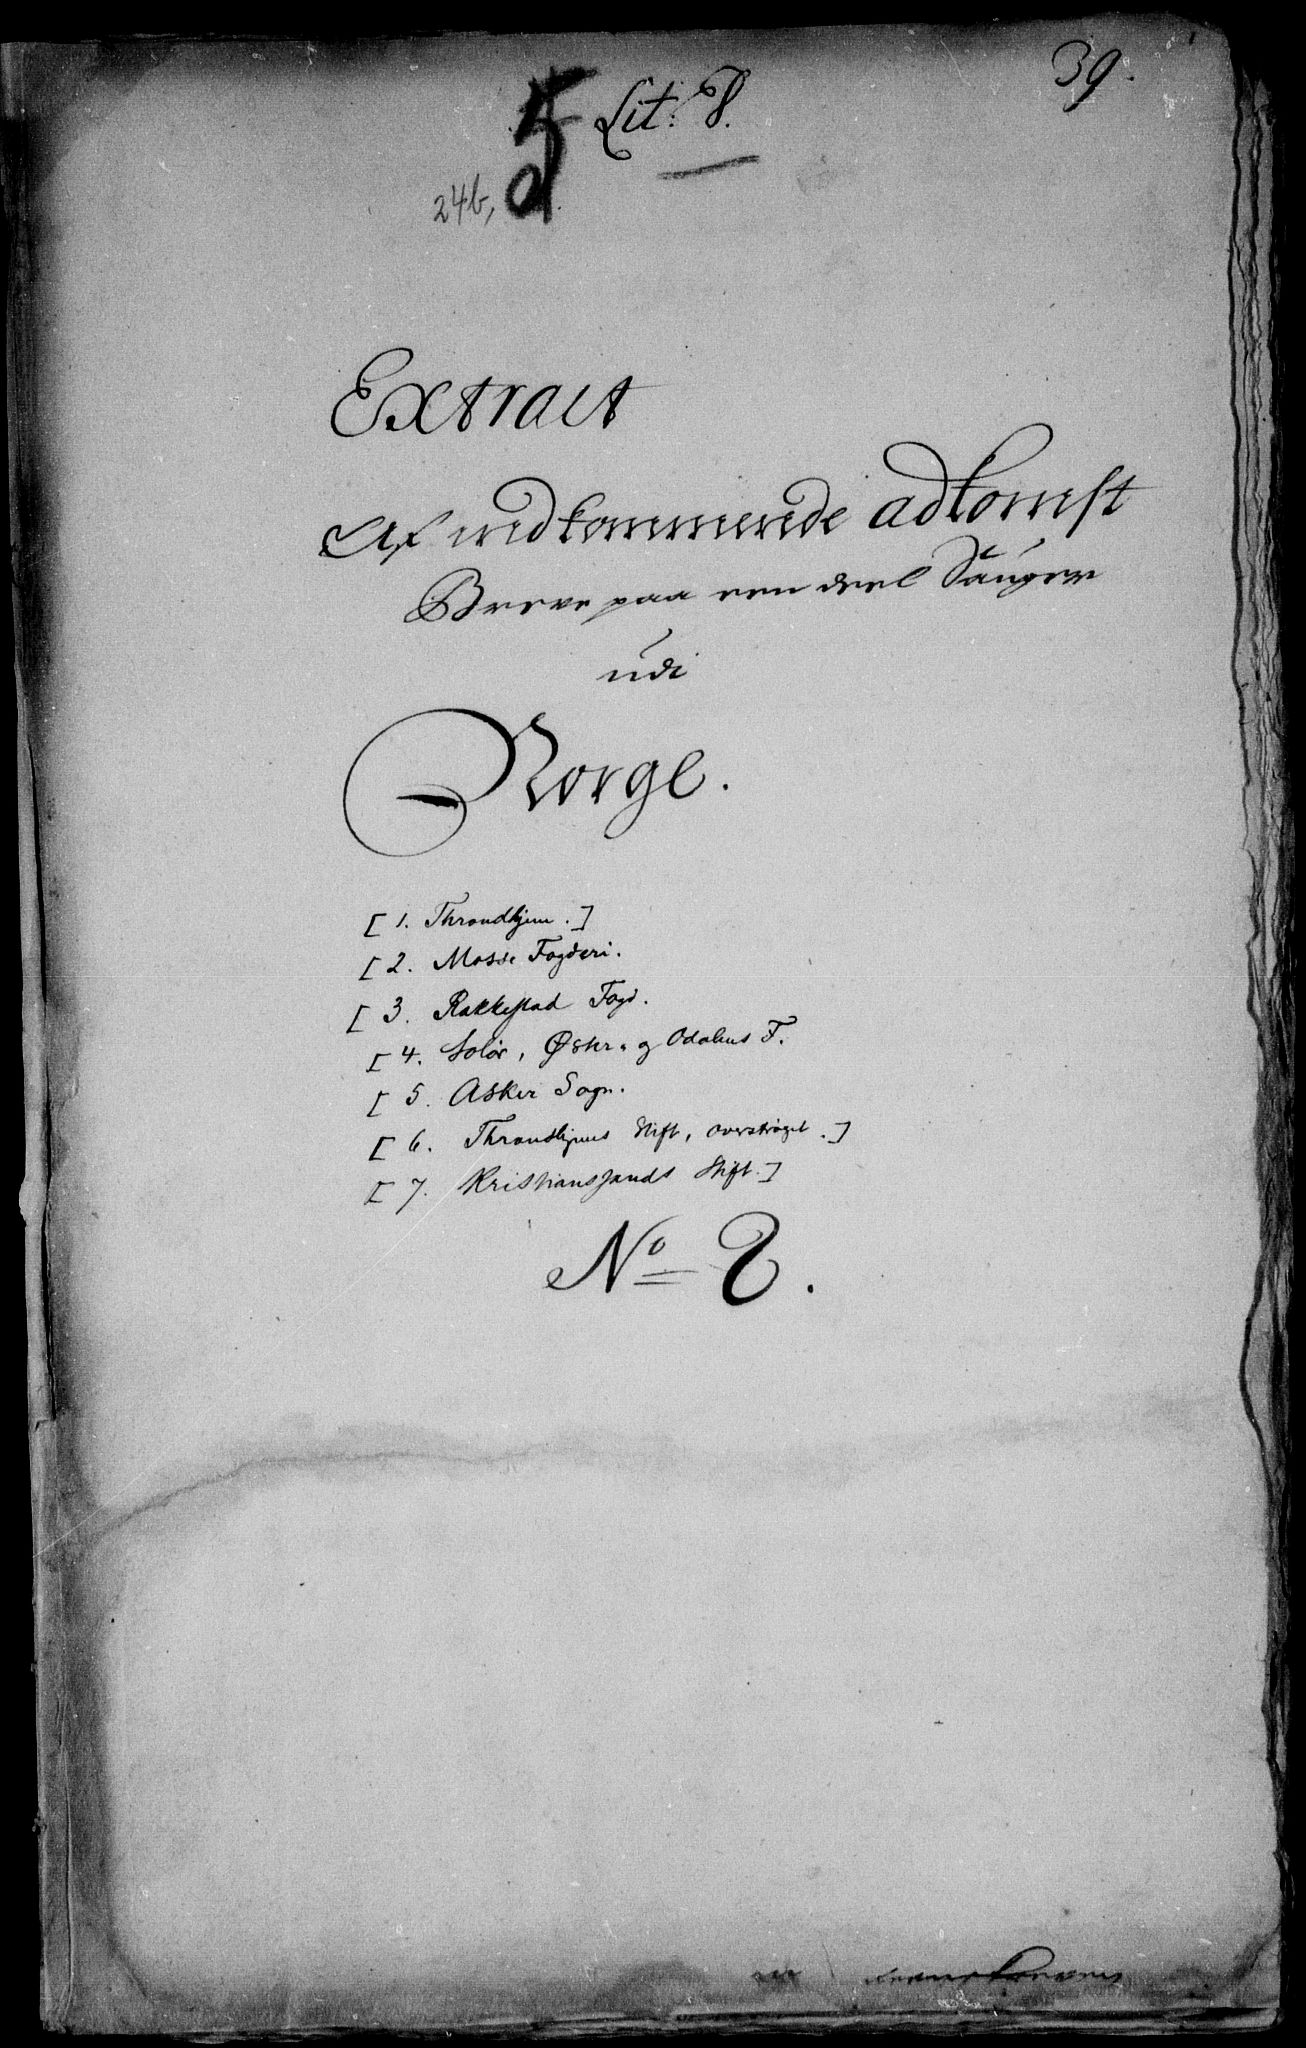 39.
5 Lit: V.
24b, d
Extract
Af indkommende adkomst
Breve paa een deel Sauger
udi
Norge.
[ 1. Throndhjem . ]
[ 2. Mosse Fogderi.
[ 3. Rakkestad Fogd.
[ 4. Solør, Østr. og Odalens F.
[ 5. Asker Sogn.
[ 6. Throndhjems Stift, overstrøget . ]
[ 7. Kristianssands Stift. ]
No 8.